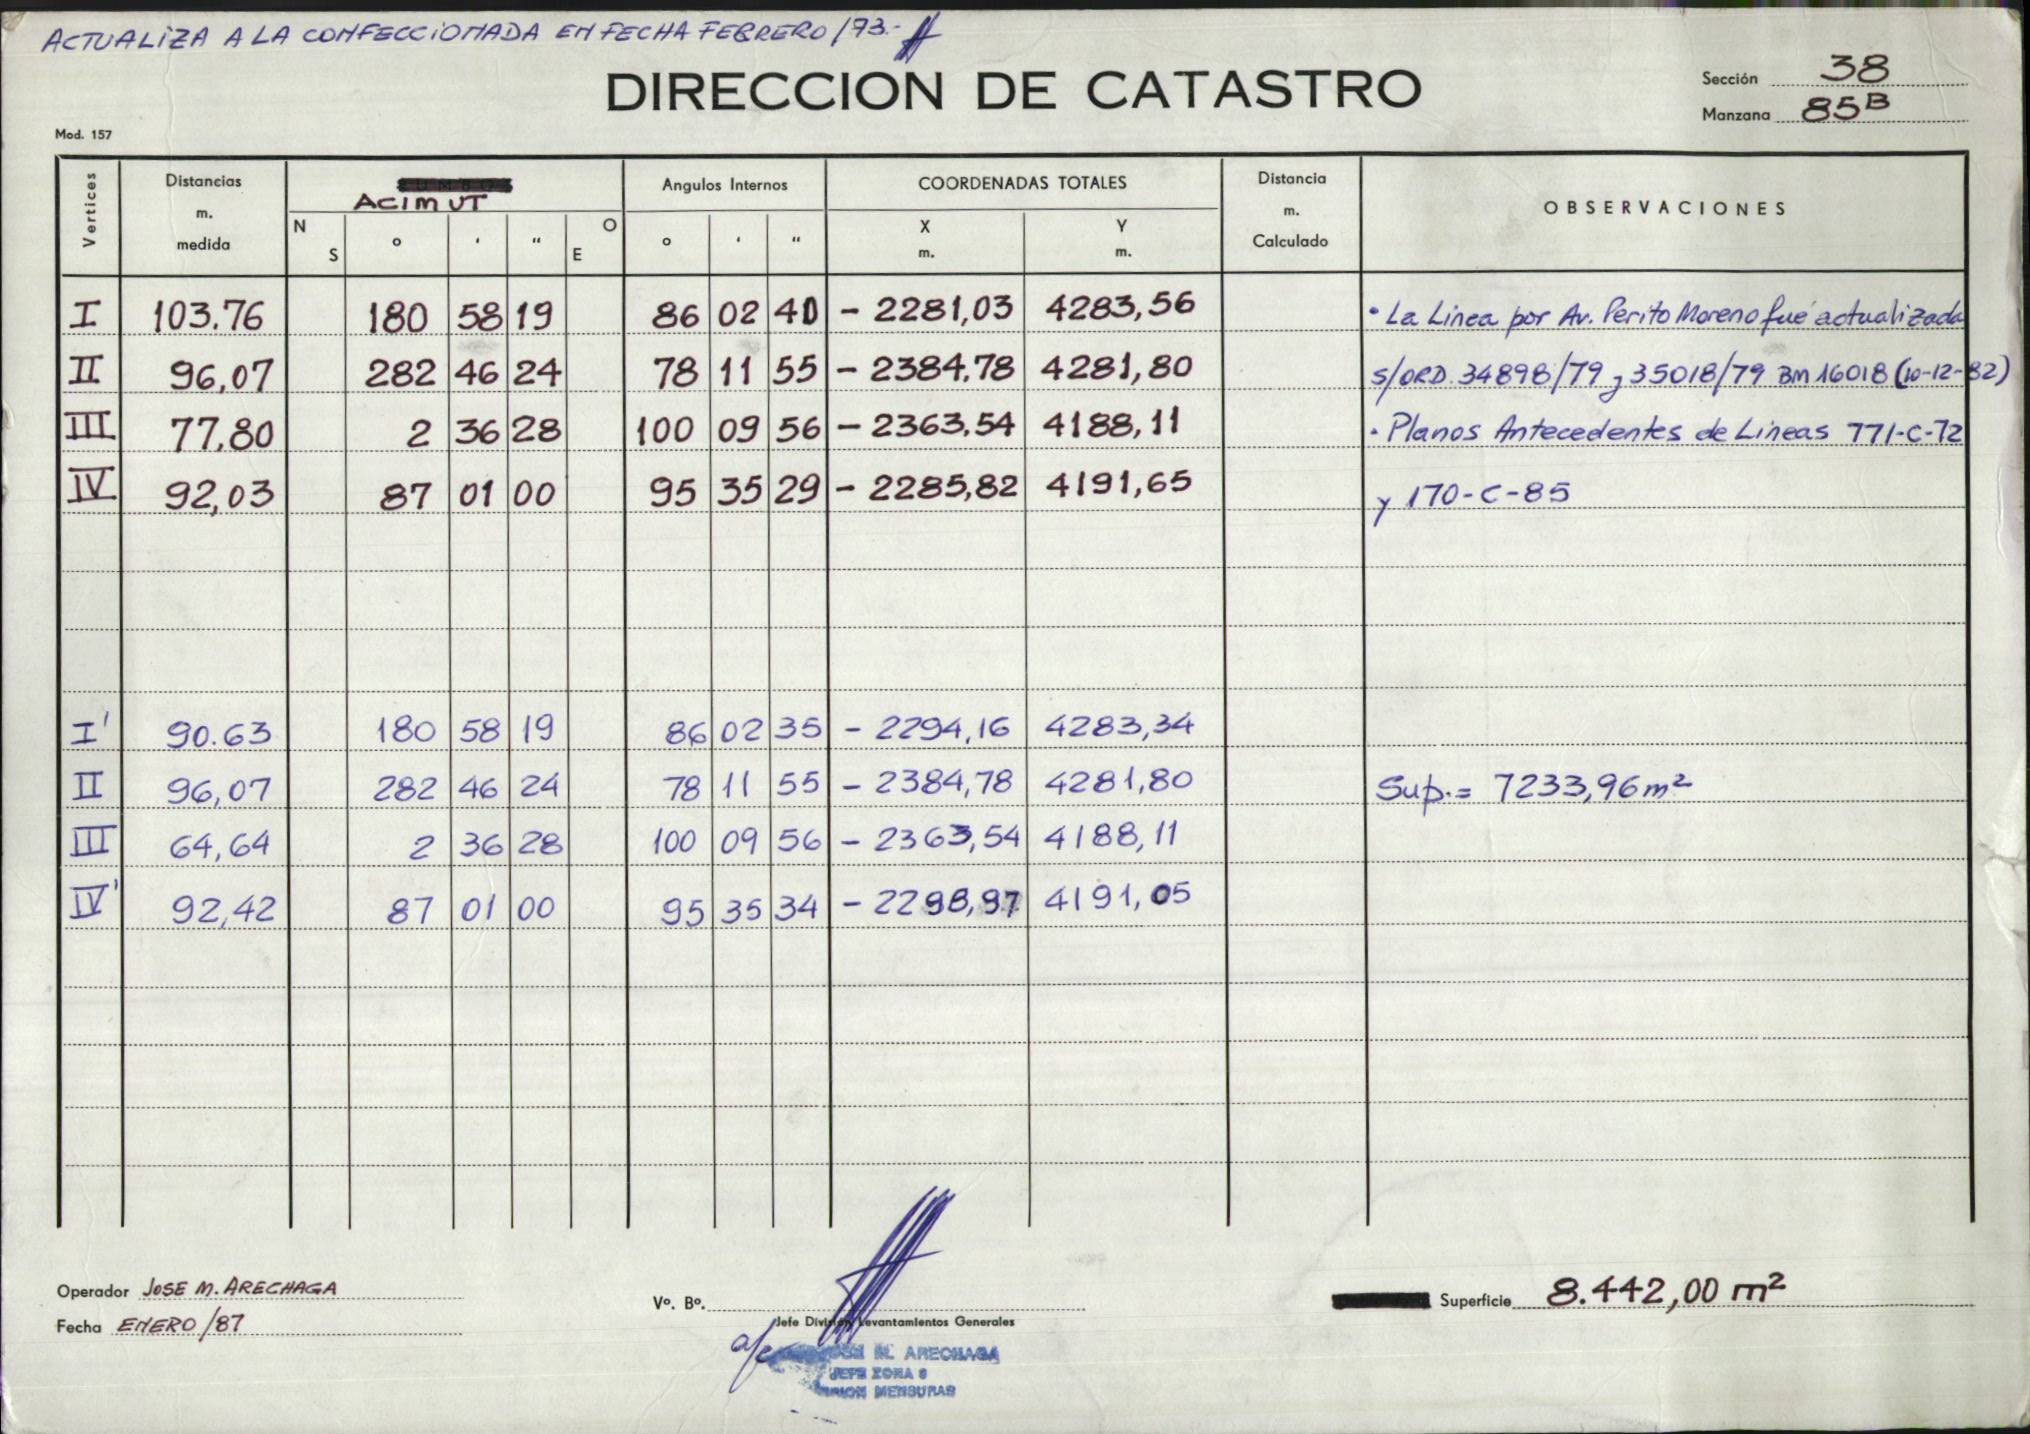 ACTUALIZA A LA CONFECCIONADA EN FECHA FEBRERO/73.-
DIRECCION DE CATASTRO
Sección 38
Manzana 85B
Mod. 157
Vertices Distancias m. medida ACIMUT N S ° ' " O E Angulos Internos ° ' " COORDENADAS TOTALES X m. Y m. Distancia m. Calculado OBSERVACIONES
I 103.76 180 58 19 86 02 40 - 2281,03 4283,56 • La Linea por Av. Perito Moreno fué actualizada
II 96,07 282 46 24 78 11 55 - 2384,78 4281,80 s/ORD. 34898/79 y 35018/79 BM 16018 (10-12-82)
III 77,80 2 36 28 100 09 56 - 2363,54 4188,11 • Planos Antecedentes de Lineas 771-C-72
IV 92,03 87 01 00 95 35 29 - 2285,82 4191,65 y 170-C-85
I' 90.63 180 58 19 86 02 35 - 2294,16 4283,34
II 96,07 282 46 24 78 11 55 - 2384,78 4281,80 Sup.= 7233,96 m²
III 64,64 2 36 28 100 09 56 - 2363,54 4188,11
IV' 92,42 87 01 00 95 35 34 - 2298,97 4191,05
Operador JOSE M. ARECHAGA
Fecha ENERO/87
Vº. Bº.
Jefe División Levantamientos Generales
a/c
M. ARECHAGA
JEFE ZONA
MENSURAS
Superficie 8.442,00 m²